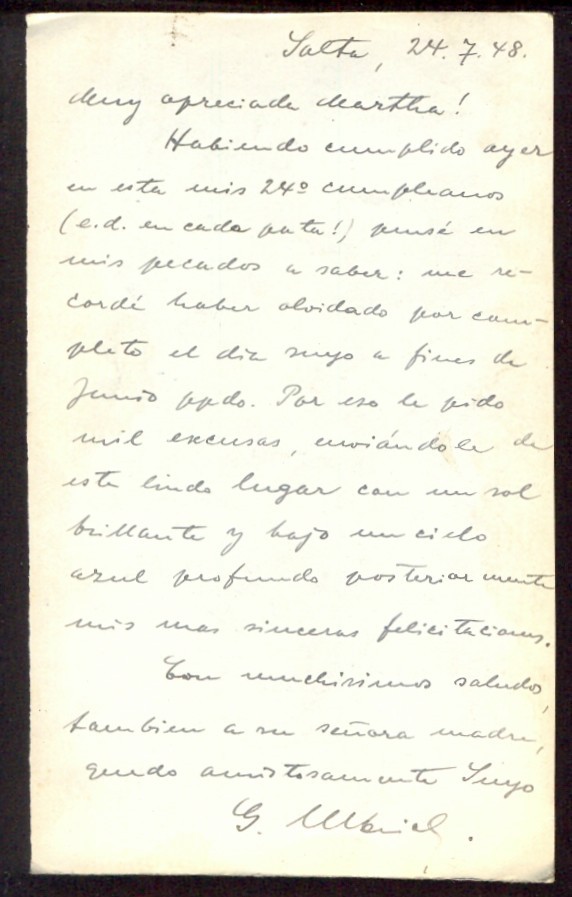 Salta, 24.7.48.
Muy apreciada Martha!
Habiendo cumplido ayer
en esta mis 24º cumpleanos
(e.d. en cada pata!) pensé en
mis pecados a saber: me re-
cordé haber olvidado por com-
pleto el dia suyo a fines de
Junio ppdo. Por eso le pido
mil excusas, enviándole de
este lindo lugar con un sol
brillante y bajo un cielo
azul profundo posteriormente
mis mas sinceras felicitaciones.
Con muchisimos saludos,
tambien a su señora madre,
quedo amistosamente Suyo
G.